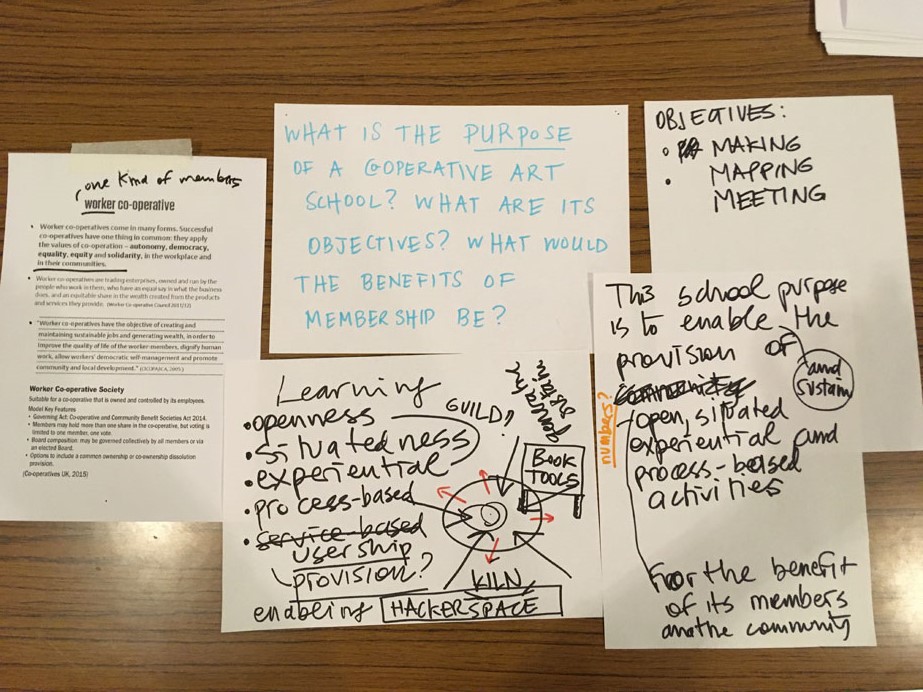 one kind of members
worker co-operative
• Worker co-operatives come in many forms. Successful
co-operatives have one thing in common: they apply
the values of co-operation – autonomy, democracy,
equality, equity and solidarity, in the workplace and
in their communities.
• Worker co-operatives are trading enterprises, owned and run by the
people who work in them, who have an equal say in what the business
does, and an equitable share in the wealth created from the products
and services they provide. (Worker Co-operative Council 2011/12)
• "Worker co-operatives have the objective of creating and
maintaining sustainable jobs and generating wealth, in order to
improve the quality of life of the worker-members, dignify human
work, allow workers' democratic self-management and promote
community and local development." (CICOPA/ICA, 2005)
Worker Co-operative Society
Suitable for a co-operative that is owned and controlled by its employees.
Model Key Features
• Governing Act: Co-operative and Community Benefit Societies Act 2014.
• Members may hold more than one share in the co-operative, but voting is
limited to one member, one vote.
• Board composition: may be governed collectively by all members or via
an elected Board.
• Options to include a common ownership or co-ownership dissolution
provision.
(Co-operatives UK, 2015)
WHAT IS THE PURPOSE
OF A COOPERATIVE ART
SCHOOL? WHAT ARE ITS
OBJECTIVES? WHAT WOULD
THE BENEFITS OF
MEMBERSHIP BE?
OBJECTIVES:
• MAKING
• MAPPING
MEETING
Learning
• openness
• situatedness
• experiential
• process-based
• service-based
usership
provision?
enabeling
GUILD
sustain
BOOK
TOOLS
KILN
HACKERSPACE
This school purpose
is to enable the
provision of
and
sustain
numbers?
open, situated
experiential and
process-based
activities
Foor the benefit
of its members
and the community